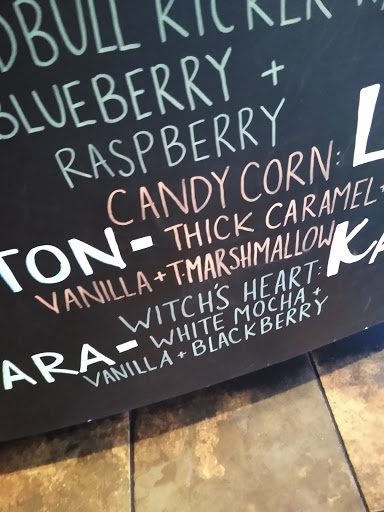 DBULL KICKER
BLUEBERRY +
RASPBERRY
L
CANDY CORN:
TON- THICK CARAMEL+
VANILLA + T.MARSHMALLOW
KA
WITCH'S HEART:
ARA- WHITE MOCHA +
VANILLA + BLACKBERRY